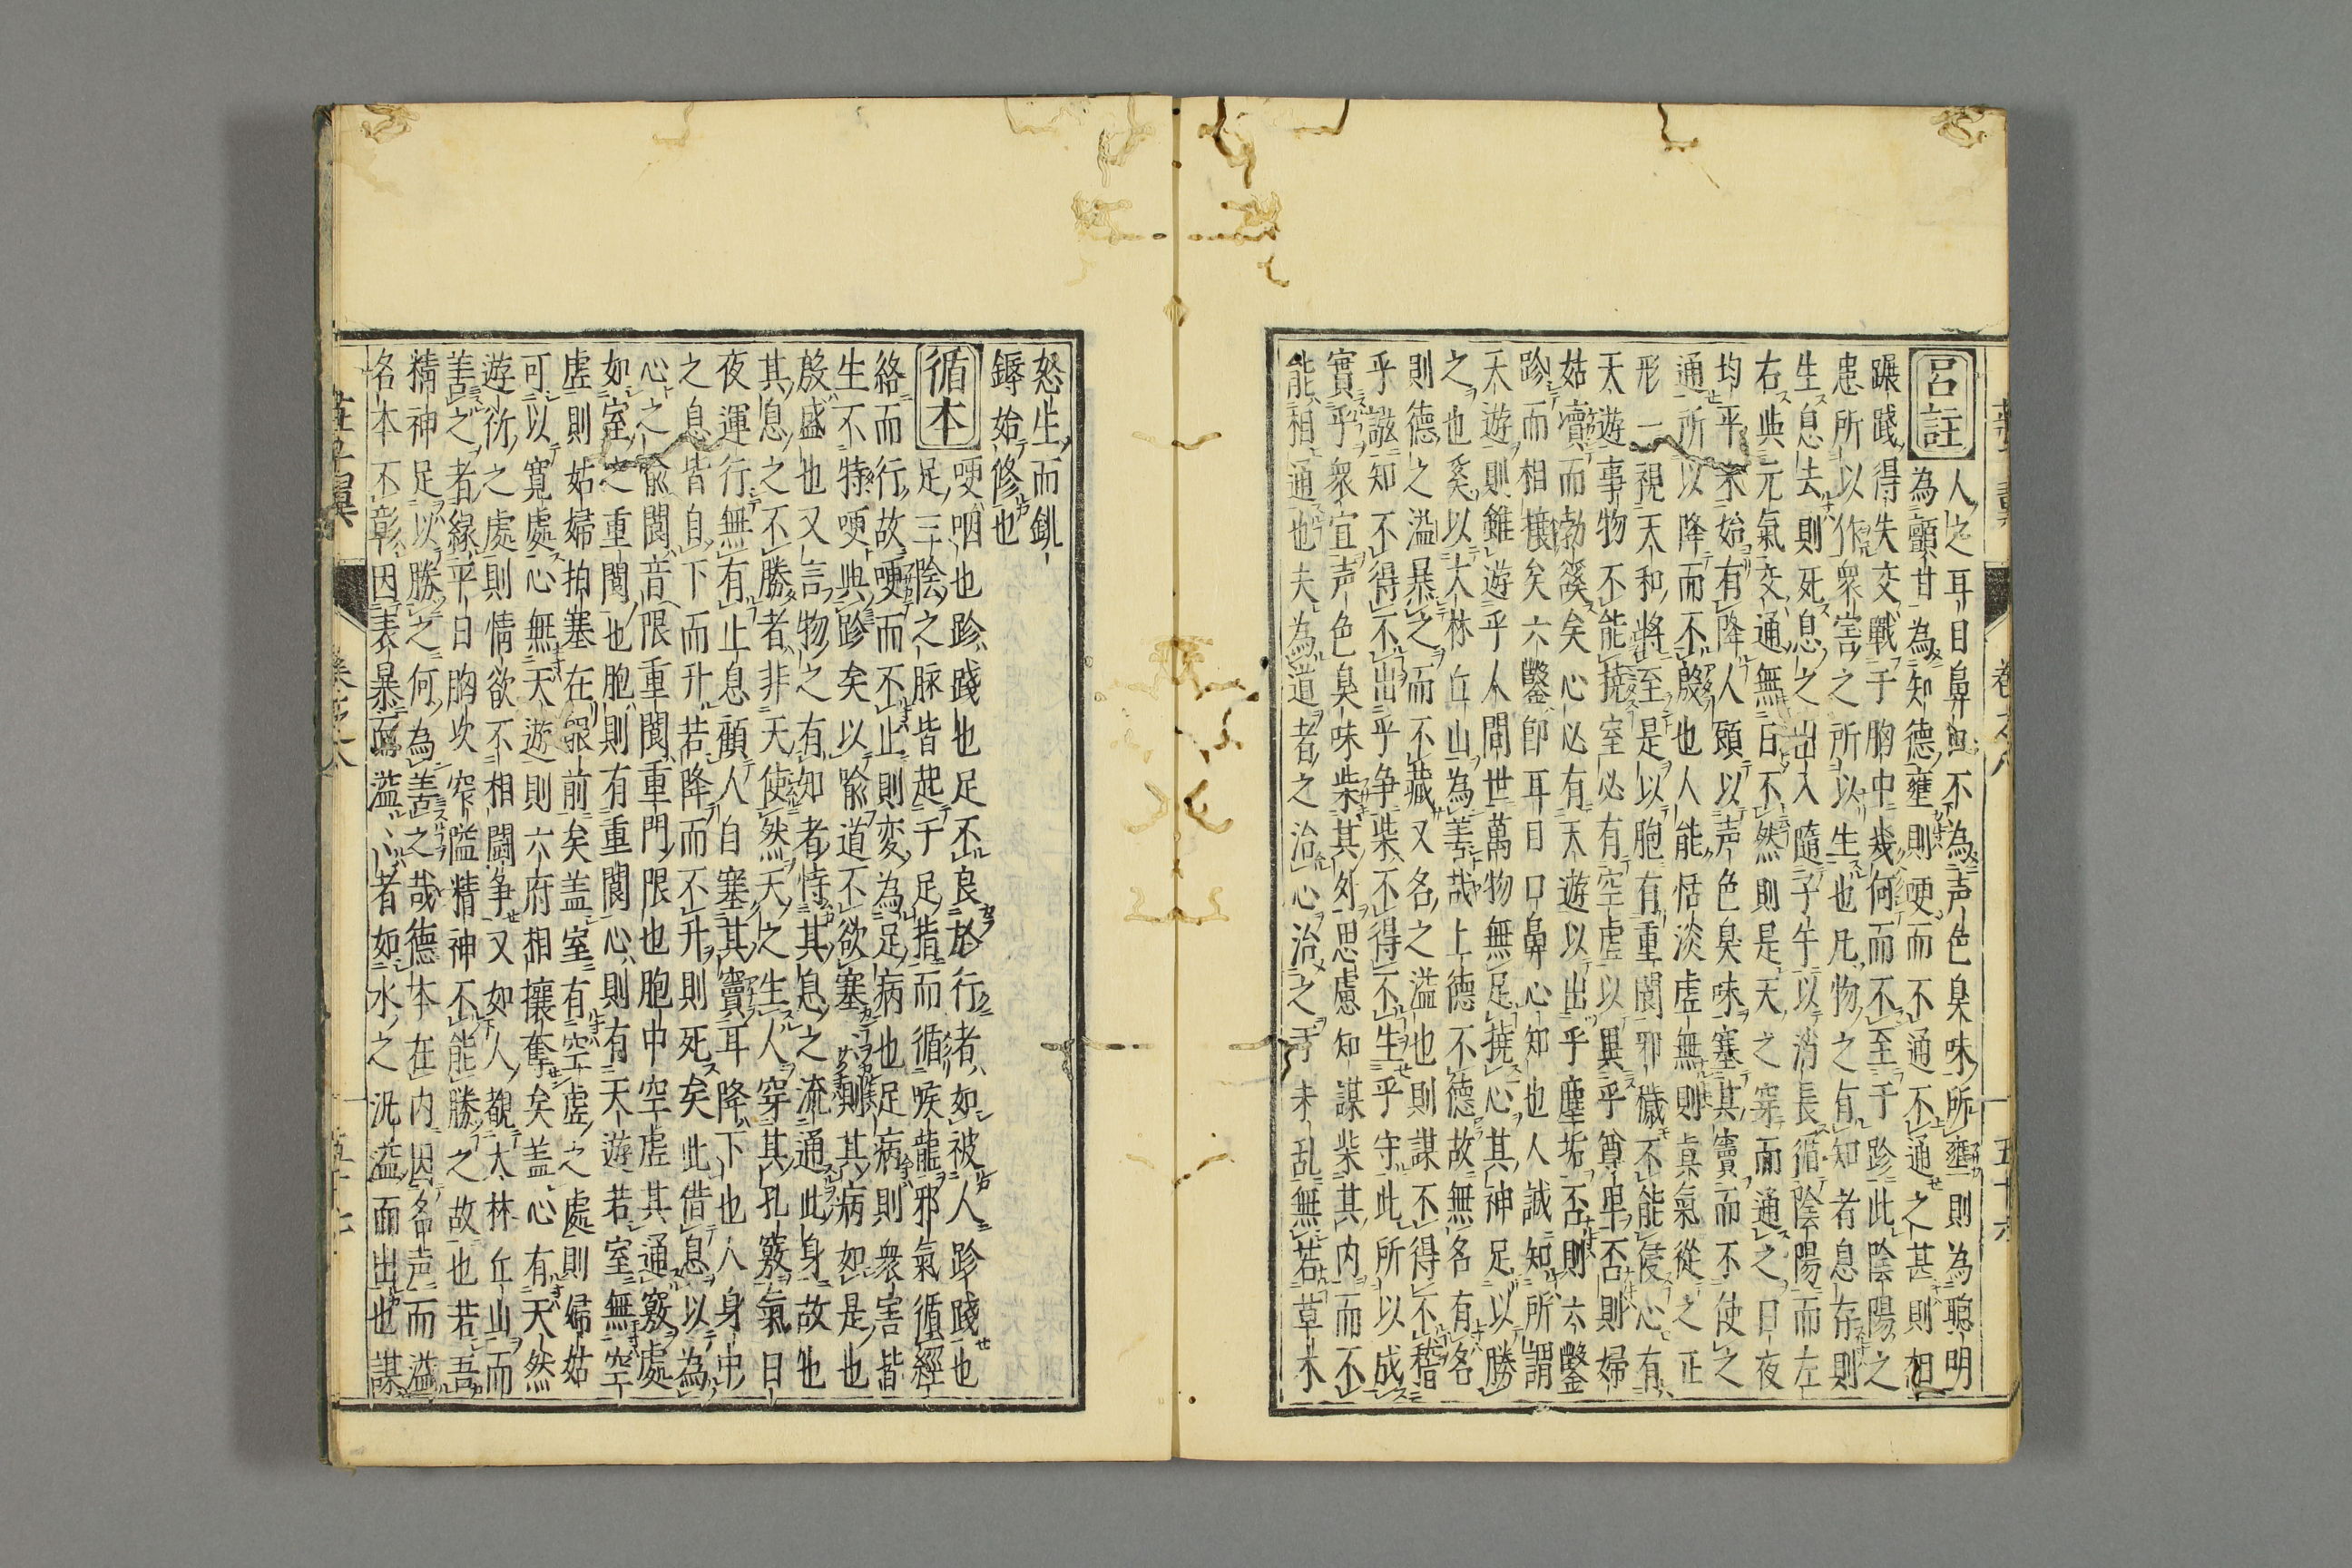 呂註
人之耳目鼻口不為声色臭味所壅則為聰明
為顫甘為知德壅則哽而不通不通之甚則相
蹍踐得失交戰于胸中幾何而不至于跈此陰陽之
患所以作衆害之所以生也凡物之有知者息存則
生息去則死息之出入隨子午以消長循陰陽而左
右與元氣交通無日不然則是天之穿而通之日夜
均平未始有降人顧以声色臭味塞其竇而不使之
通所以降而不殷也人能恬淡虛無則真氣從之正
形一視天和將至是以胞有重閬邪穢不能侵心有
天遊事物不能撓室必有空虛以異乎尊卑否則婦
姑𧶠而勃豀矣心必有天遊以出乎塵垢否則六鑿
跈而相攘矣六鑿即耳目口鼻心知也人誠知所謂
天遊則雖遊乎人間世萬物無足撓心其神足以勝
之也奚以大林丘山為善哉上德不德故無名有名
則德之溢暴之而不藏又名之溢也則謀不得不稽
乎諰知不得不出乎争柴不得不生乎守此所以成
實乎衆宜声色臭味柴其外思慮知謀柴其内而不
能相通也夫為道者之治心治之于未乱無若草木
怒生而銚
鎒始修也
循本
哽咽也跈踐也足不良於行者如被人跈踐也
足三陰之脉皆起于足指而循喉嚨邪氣循經
絡而行故哽而不止則変為足病也足病則衆害皆
生不特哽與跈矣以喻道不欲塞則其病如是也
殷盛也又言物之有知者恃其息之流通此身故也
其息之不勝者非天使然天之生人穿其孔竅氣日
夜運行無有止息顧人自塞其竇耳降下也人身中
之息皆自下而升若降而不升則死矣此借息以為
心之喻閬音限重閬重門限也胞中空虛其通竅處
如室之重閬也胞則有重閬心則有天遊若室無空
虛則姑婦拍塞在眼前矣盖室有空虛之處則婦姑
可以寛處心無天遊則六府相攘奪矣盖心有天然
遊衍之處則情欲不相鬪争又如人観大林丘山而
善之者緣平日胸次窄隘精神不能勝之故也若吾
精神足以勝之何為善之哉德本在内因名声而溢
名本不彰因表暴而溢溢者如水之汎溢而出也謀